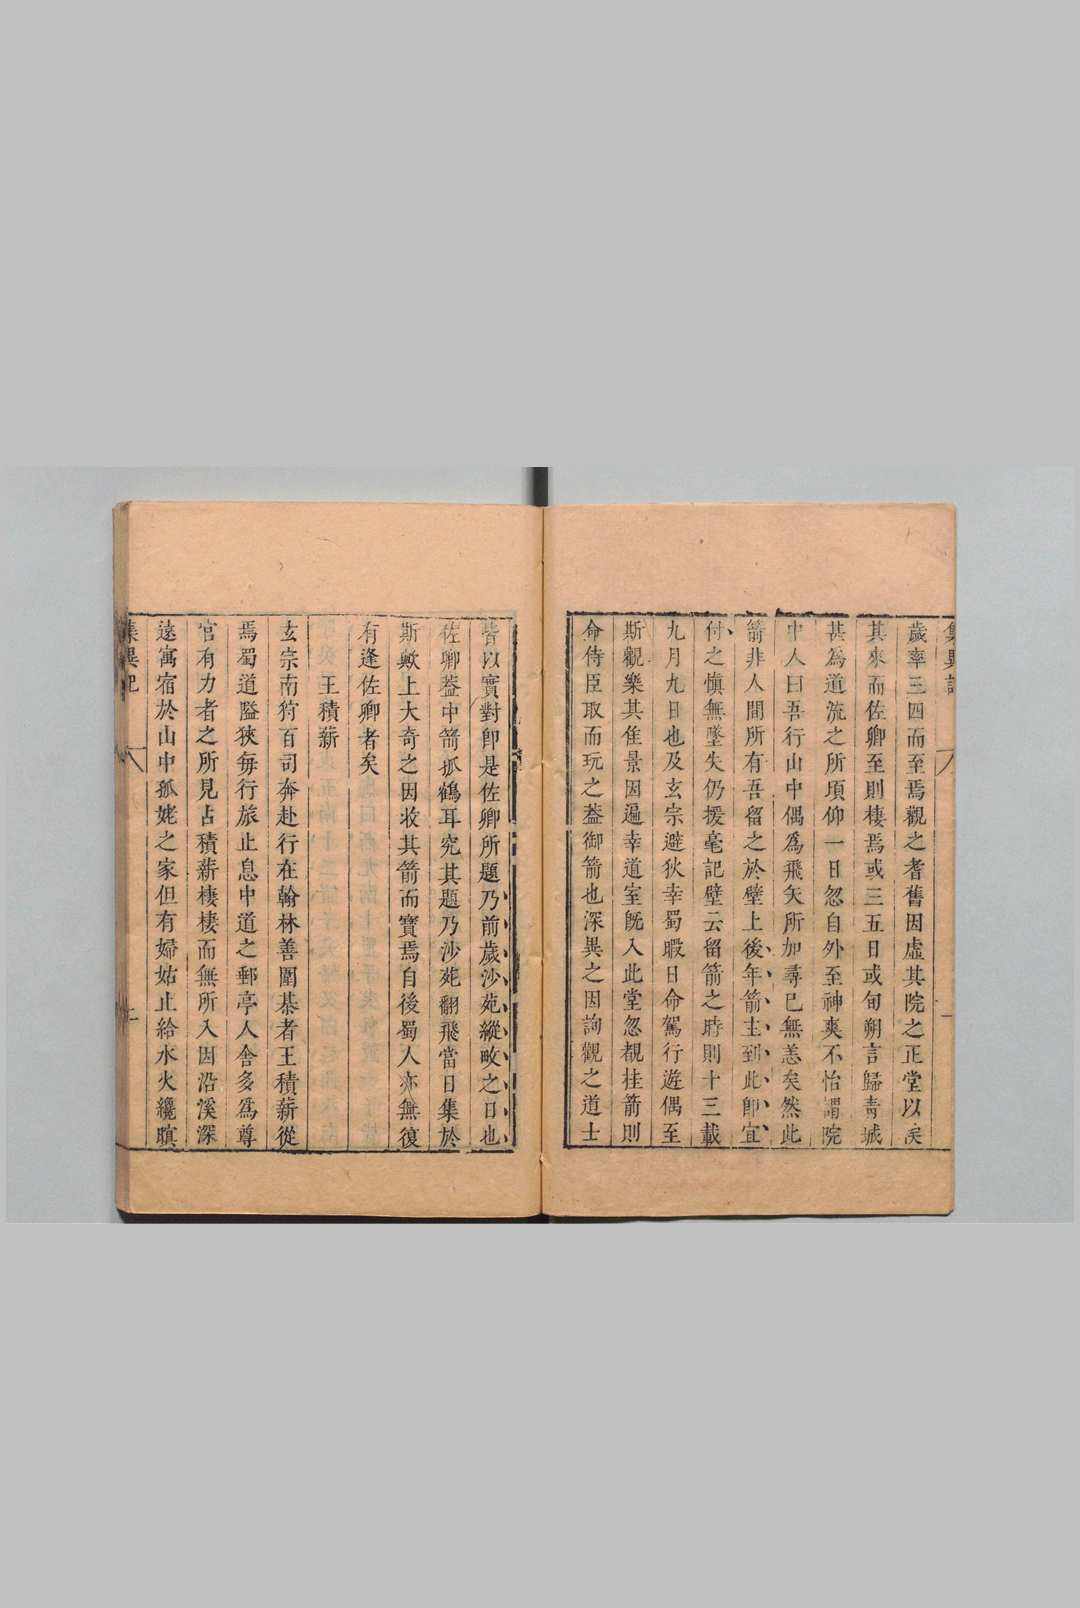 集異記
歲率三四而至焉觀之耆舊因虛其院之正堂以俟
其來而佐卿至則棲焉或三五日或旬朔言歸青城
甚為道流之所傾仰一日忽自外至神爽不怡謂院
中人曰吾行山中偶爲飛矢所加尋已無恙矣然此
箭非人間所有吾留之於壁上後年箭主到此卽宜
付之慎無墜失仍援毫記壁云留箭之時則十三載
九月九日也及玄宗避狄幸蜀暇日命駕行遊偶至
斯觀樂其佳景因遍幸道室旣入此堂忽覩挂箭則
命侍臣取而玩之葢御箭也深異之因詢觀之道士
皆以實對卽是佐卿所題乃前歲沙苑縱畋之日也
佐卿葢中箭孤鶴耳究其題乃沙苑翻飛當日集於
斯歟上大奇之因收其箭而寶焉自後蜀人亦無復
有逢佐卿者矣
王積薪
玄宗南狩百司奔赴行在翰林善圍棊者王積薪從
焉蜀道隘狹每行旅止息中道之郵亭人舍多爲尊
官有力者之所見占積薪棲棲而無所入因沿溪深
遠寓宿於山中孤姥之家但有婦姑止給水火纔暝
集異記